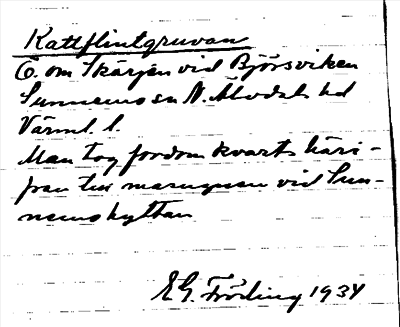 Kattflintgruvan
Ö. om Skärjen vid Björsviken
Sunnemo sn N. Älvdals hd
Värml. l.
Man tog fordom kvarts häri-
från till masugnen vid Sun-
nemohyttan
EG. Fröding 1934